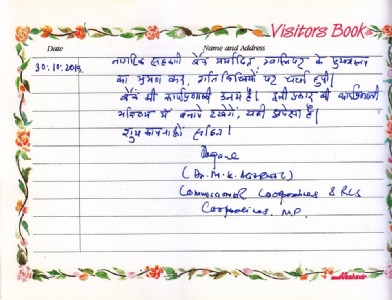 Visitors Book
Date Name and Address
30.10.2013 नागरिक सहकारी बैंक मर्यादित, ग्वालियर के मुख्यालय
का भ्रमण कर, गतिविधियों पर चर्चा हुयी।
बैंक की कार्यप्रणाली उत्तम है। इसी प्रकार की कार्यप्रणाली
भविष्य में बनाये रखेंगे, यही अपेक्षा है।
शुभकामनाओं सहित।
(Dr. M.K. Agarwal)
Commissioner Cooperatives & RCS
Cooperatives, MP.